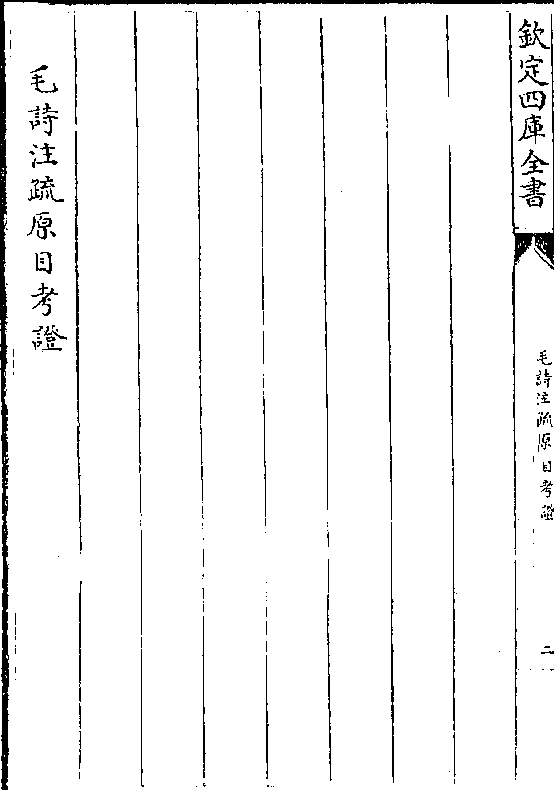 欽定四庫全書
毛詩注疏原目考證
二
毛詩注疏原目考證